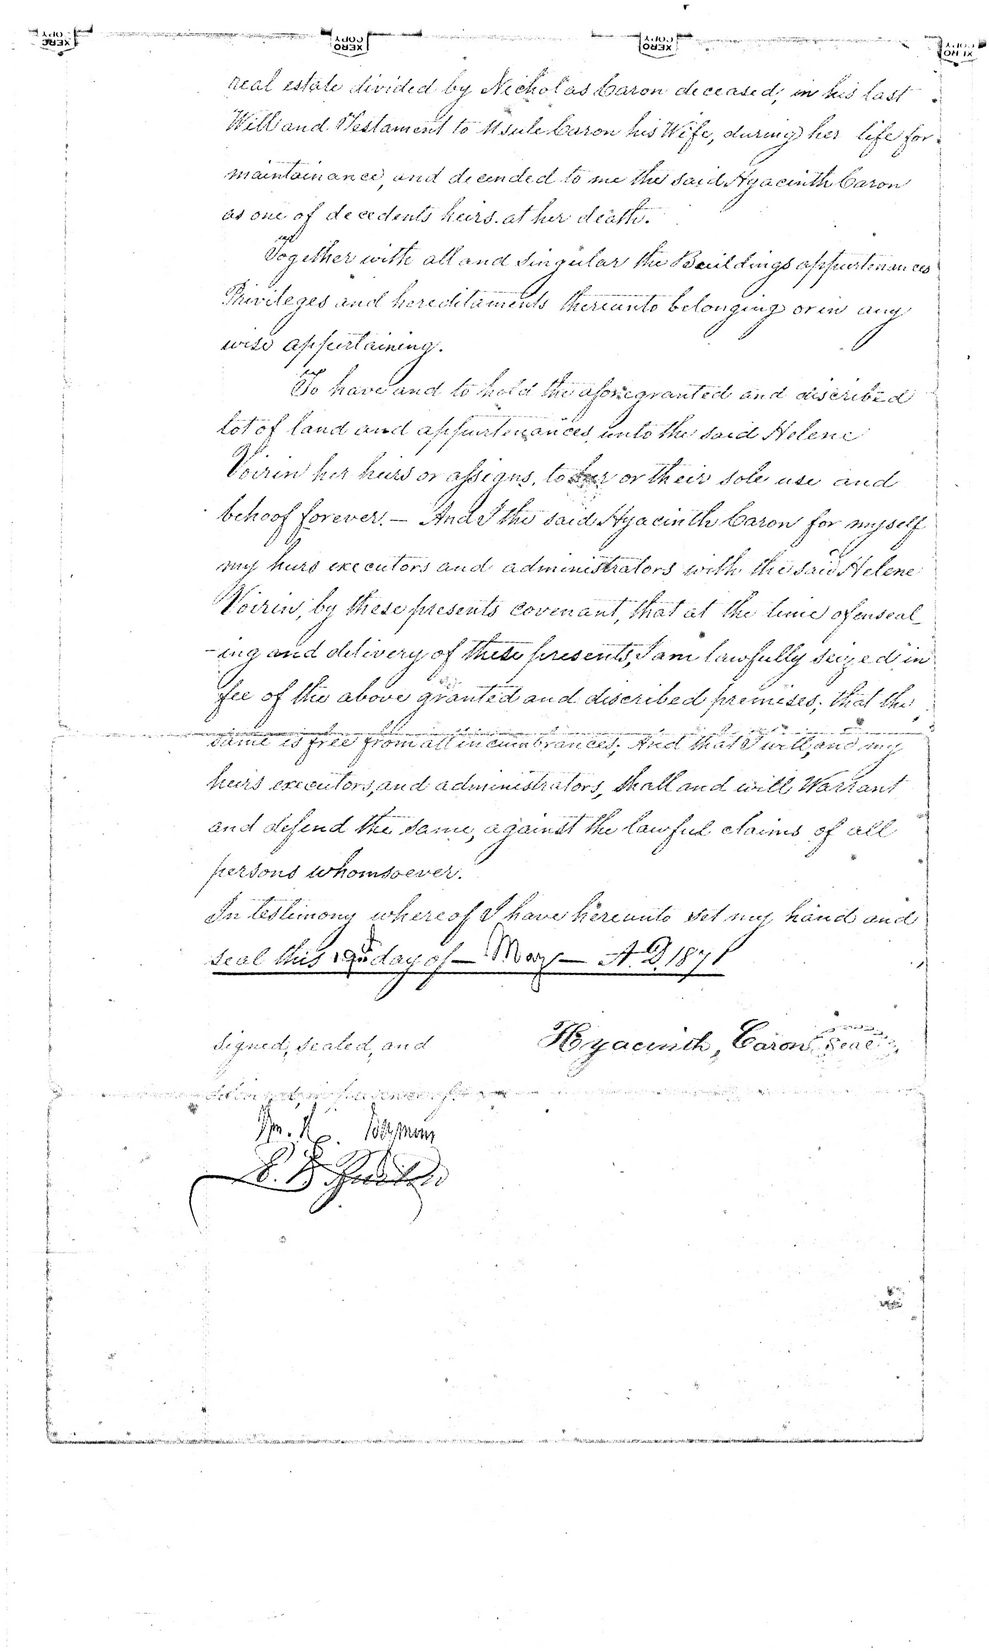 XERO COPY
XERO COPY
XERO COPY
XERO COPY
real estate divided by Nicholas Caron deceased, in his last
Will and Testament to Usule Caron his Wife, during her life for
maintainance, and decended to me the said Hyacinth Caron
as one of decedents heirs at her death.
Together with all and singular the Buildings appurtenances
Privileges and hereditaments thereunto belonging or in any
wise appertaining.
To have and to hold the afore granted and discribed
lot of land and appurtenances unto the said Helene
Voirin her heirs or assigns, to her or their sole use and
behoof forever. — And I the said Hyacinth Caron for myself
my heirs executors and administrators with the said Helene
Voirin, by these presents covenant, that at the time of enseal_
-ing and delivery of these presents, I am lawfully seized in
fee of the above granted and discribed premises; that the
same is free from all incumbrances; And that I will, and my
heirs executors, and administrators, shall and will Warrant
and defend the same, against the lawful claims of all
persons whomsoever.
In testimony whereof I have hereunto set my hand and
seal this day of — May — A.D. 1871
signed, sealed, and Hyacinth, Caron Seal
in presence of
Wm. H.
E. B.